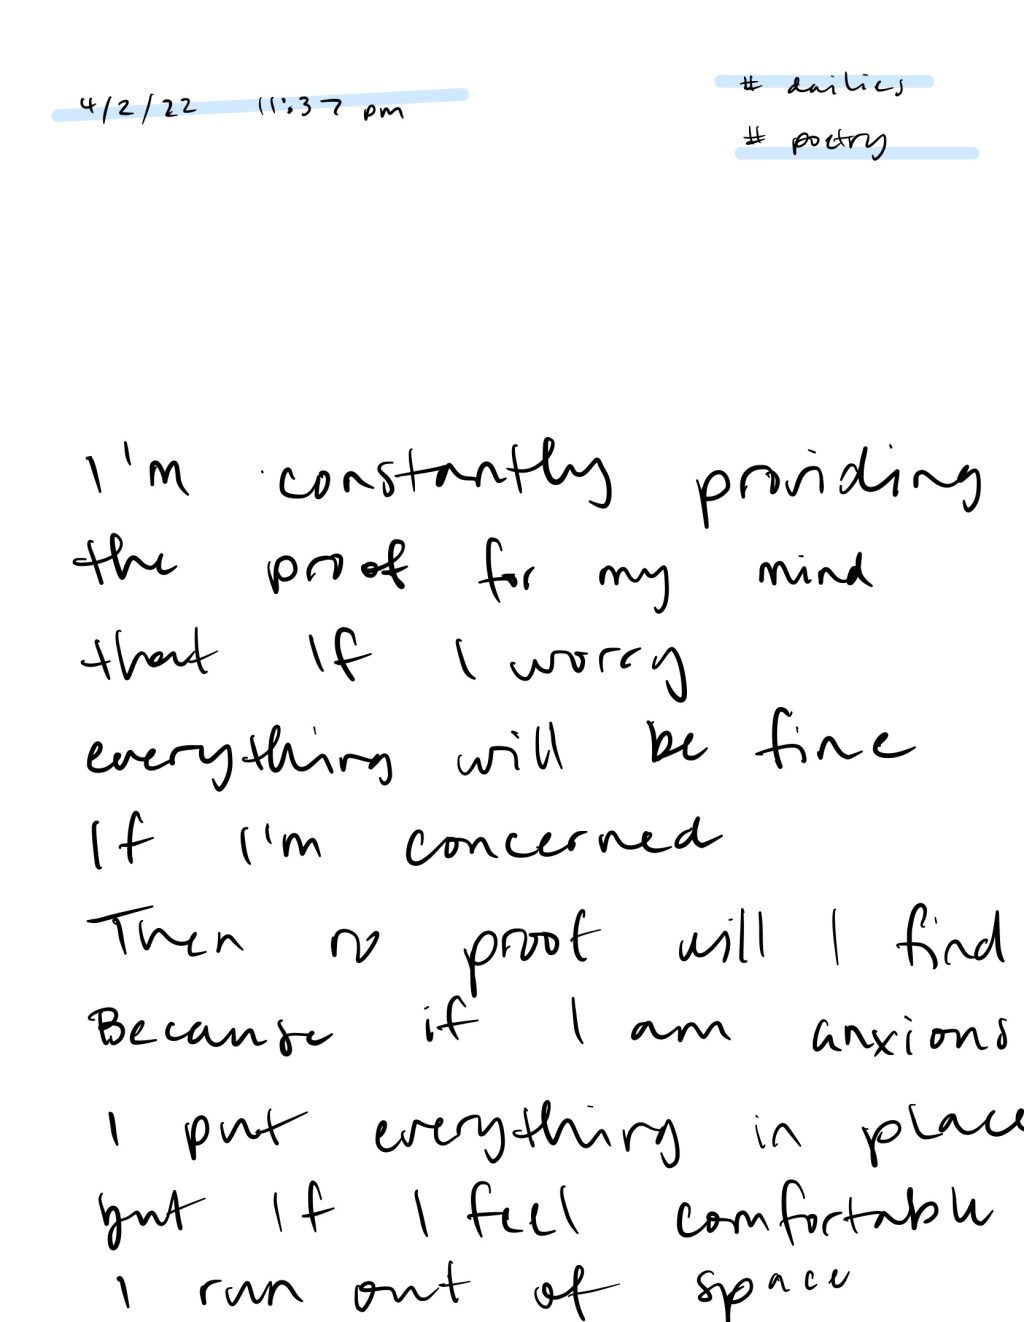 4/2/22 11:37 pm
# dailies
# poetry
I'm constantly providing
the proof for my mind
that If I worry
everything will be fine
If I'm concerned
Then no proof will I find
Because if I am anxious
I put everything in place
but If I feel comfortable
I run out of space